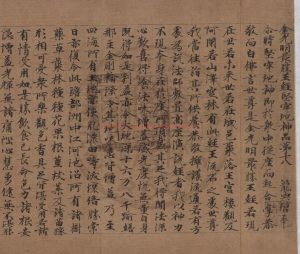 金光明最勝王經堅牢地神品第十八
尒時堅牢地神即於衆中從座而起合掌恭
敬而白佛言世尊是金光明最勝王經若現
在世若未來世若在城邑聚落王宮樓觀及
阿蘭若山澤空林有此經王流布之處世尊
我當往詣其所供養恭敬擁護流通若有方
處為說法師敷置高座演說經者我以神力
不現本身在於座所頂戴其足我得聞法深
心歡喜得飡法味增益威光慶悅無量自身
既得如是利益亦令大地深十六万八千踰繕
那至金剛輪際令其地味悉皆增益乃至
四海所有土地亦使肥濃田疇沃壤倍勝常
日亦復令此贍部洲中江河池沼所有諸樹
藥草叢林種種花果根莖枝葉及諸苗稼
形相可愛衆所樂觀色香具足皆堪受用若諸
有情受用如是勝飲食已長命色力諸根安
隱增益光輝無諸痛惱心慧勇健無不堪